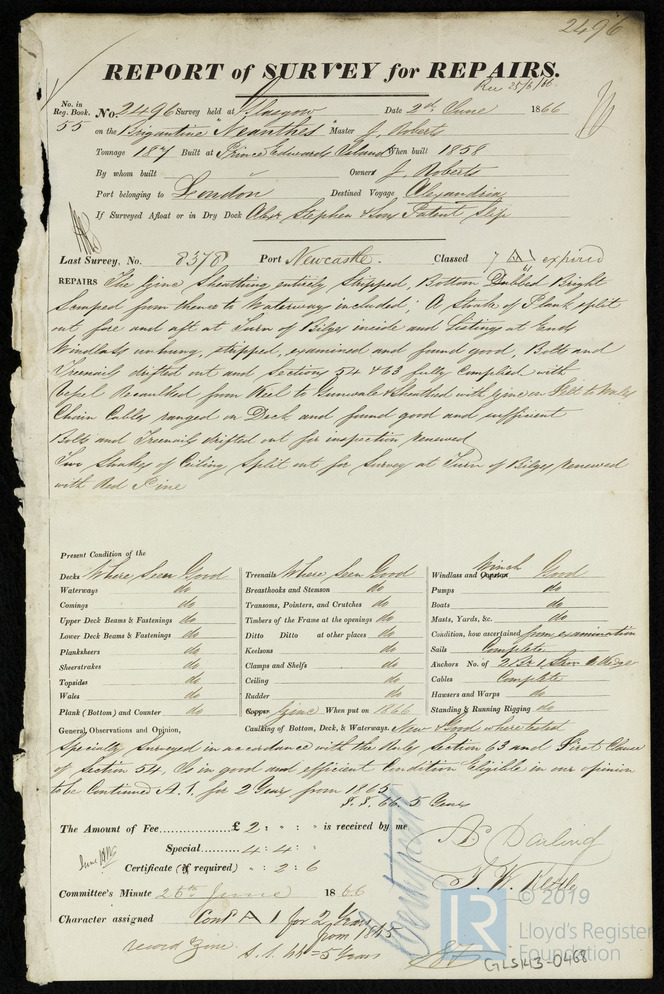 2496
REPORT of SURVEY for REPAIRS.
Rec 25/6/66
No. in Reg. Book. No. 2496 Survey held at Glasgow Date 2nd June 1866
55 on the Brigantine "Neanthes" Master J. Roberts
Tonnage 187 Built at Prince Edwards Island When built 1858
By whom built Owners J. Roberts
Port belonging to London Destined Voyage Alexandria
If Surveyed Afloat or in Dry Dock Alexr Stephen & Sons Patent Slip
Last Survey, No. 8378 Port Newcastle. Classed 7 A 1 61 expired
REPAIRS The Zinc Sheathing entirely Stripped, Bottom Dubbed Bright
Scraped from thence to Waterways included; A Strake of Plank split
out, fore and aft at Turn of Bilges inside and Listings at Ends
Windlass unhung, stripped, examined and found good, Bolts and
Treenails drifted out and Sections 54 & 63 fully Complied with
Vessel Recaulked from Keel to Gunwale & Sheathed with Zinc on Felt to Wales
Chain Cables ranged on Deck and found good and sufficient
Bolts and Treenails drifted out for inspection renewed
Two Strakes of Ceiling Split out for Survey at Turn of Bilges renewed
with Red Pine
Present Condition of the
Decks Where Seen Good Treenails Where Seen Good Windlass and Capstan Winch Good
Waterways do Breasthooks and Stemson do Pumps do
Comings do Transoms, Pointers, and Crutches do Boats do
Upper Deck Beams & Fastenings do Timbers of the Frame at the openings do Masts, Yards, &c. do
Lower Deck Beams & Fastenings do Ditto Ditto at other places do Condition, how ascertained from examination
Planksheers do Keelsons do Sails Complete
Sheerstrakes do Clamps and Shelfs do Anchors No. of
Topsides do Ceiling do Cables Complete
Wales do Rudder do Hawsers and Warps do
Plank (Bottom) and Counter do Copper Zinc When put on 1866 Standing & Running Rigging do
General, Observations and Opinion, Caulking of Bottom, Deck, & Waterways. New & Good where tested
Specially Surveyed in accordance with the Rules Section 63 and First Clause
of Section 54, Is in good and efficient Condition Eligible in our opinion
to be Continued A.1. for 2 Years from 1865
8.8.66. 5 Years
The Amount of Fee £ 2 : " : " is received by me,
Special 4 : 4 :
Certificate (if required) " : 2 : 6
A. Darling
Committee's Minute 26th June 1866
Character assigned Contd A 1 for 2 Years
from 1865
record Zinc. S.S. 66 = 5 Years
© 2019
LR
Lloyd's Register
Foundation
GLSK13-0468